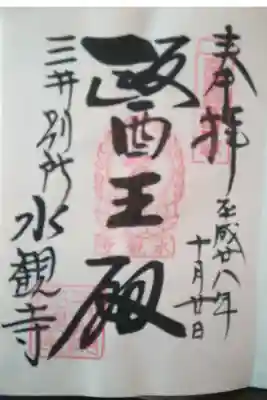 奉拝
平成廿八年
十月廿日
醫王殿
三井別所
水観寺